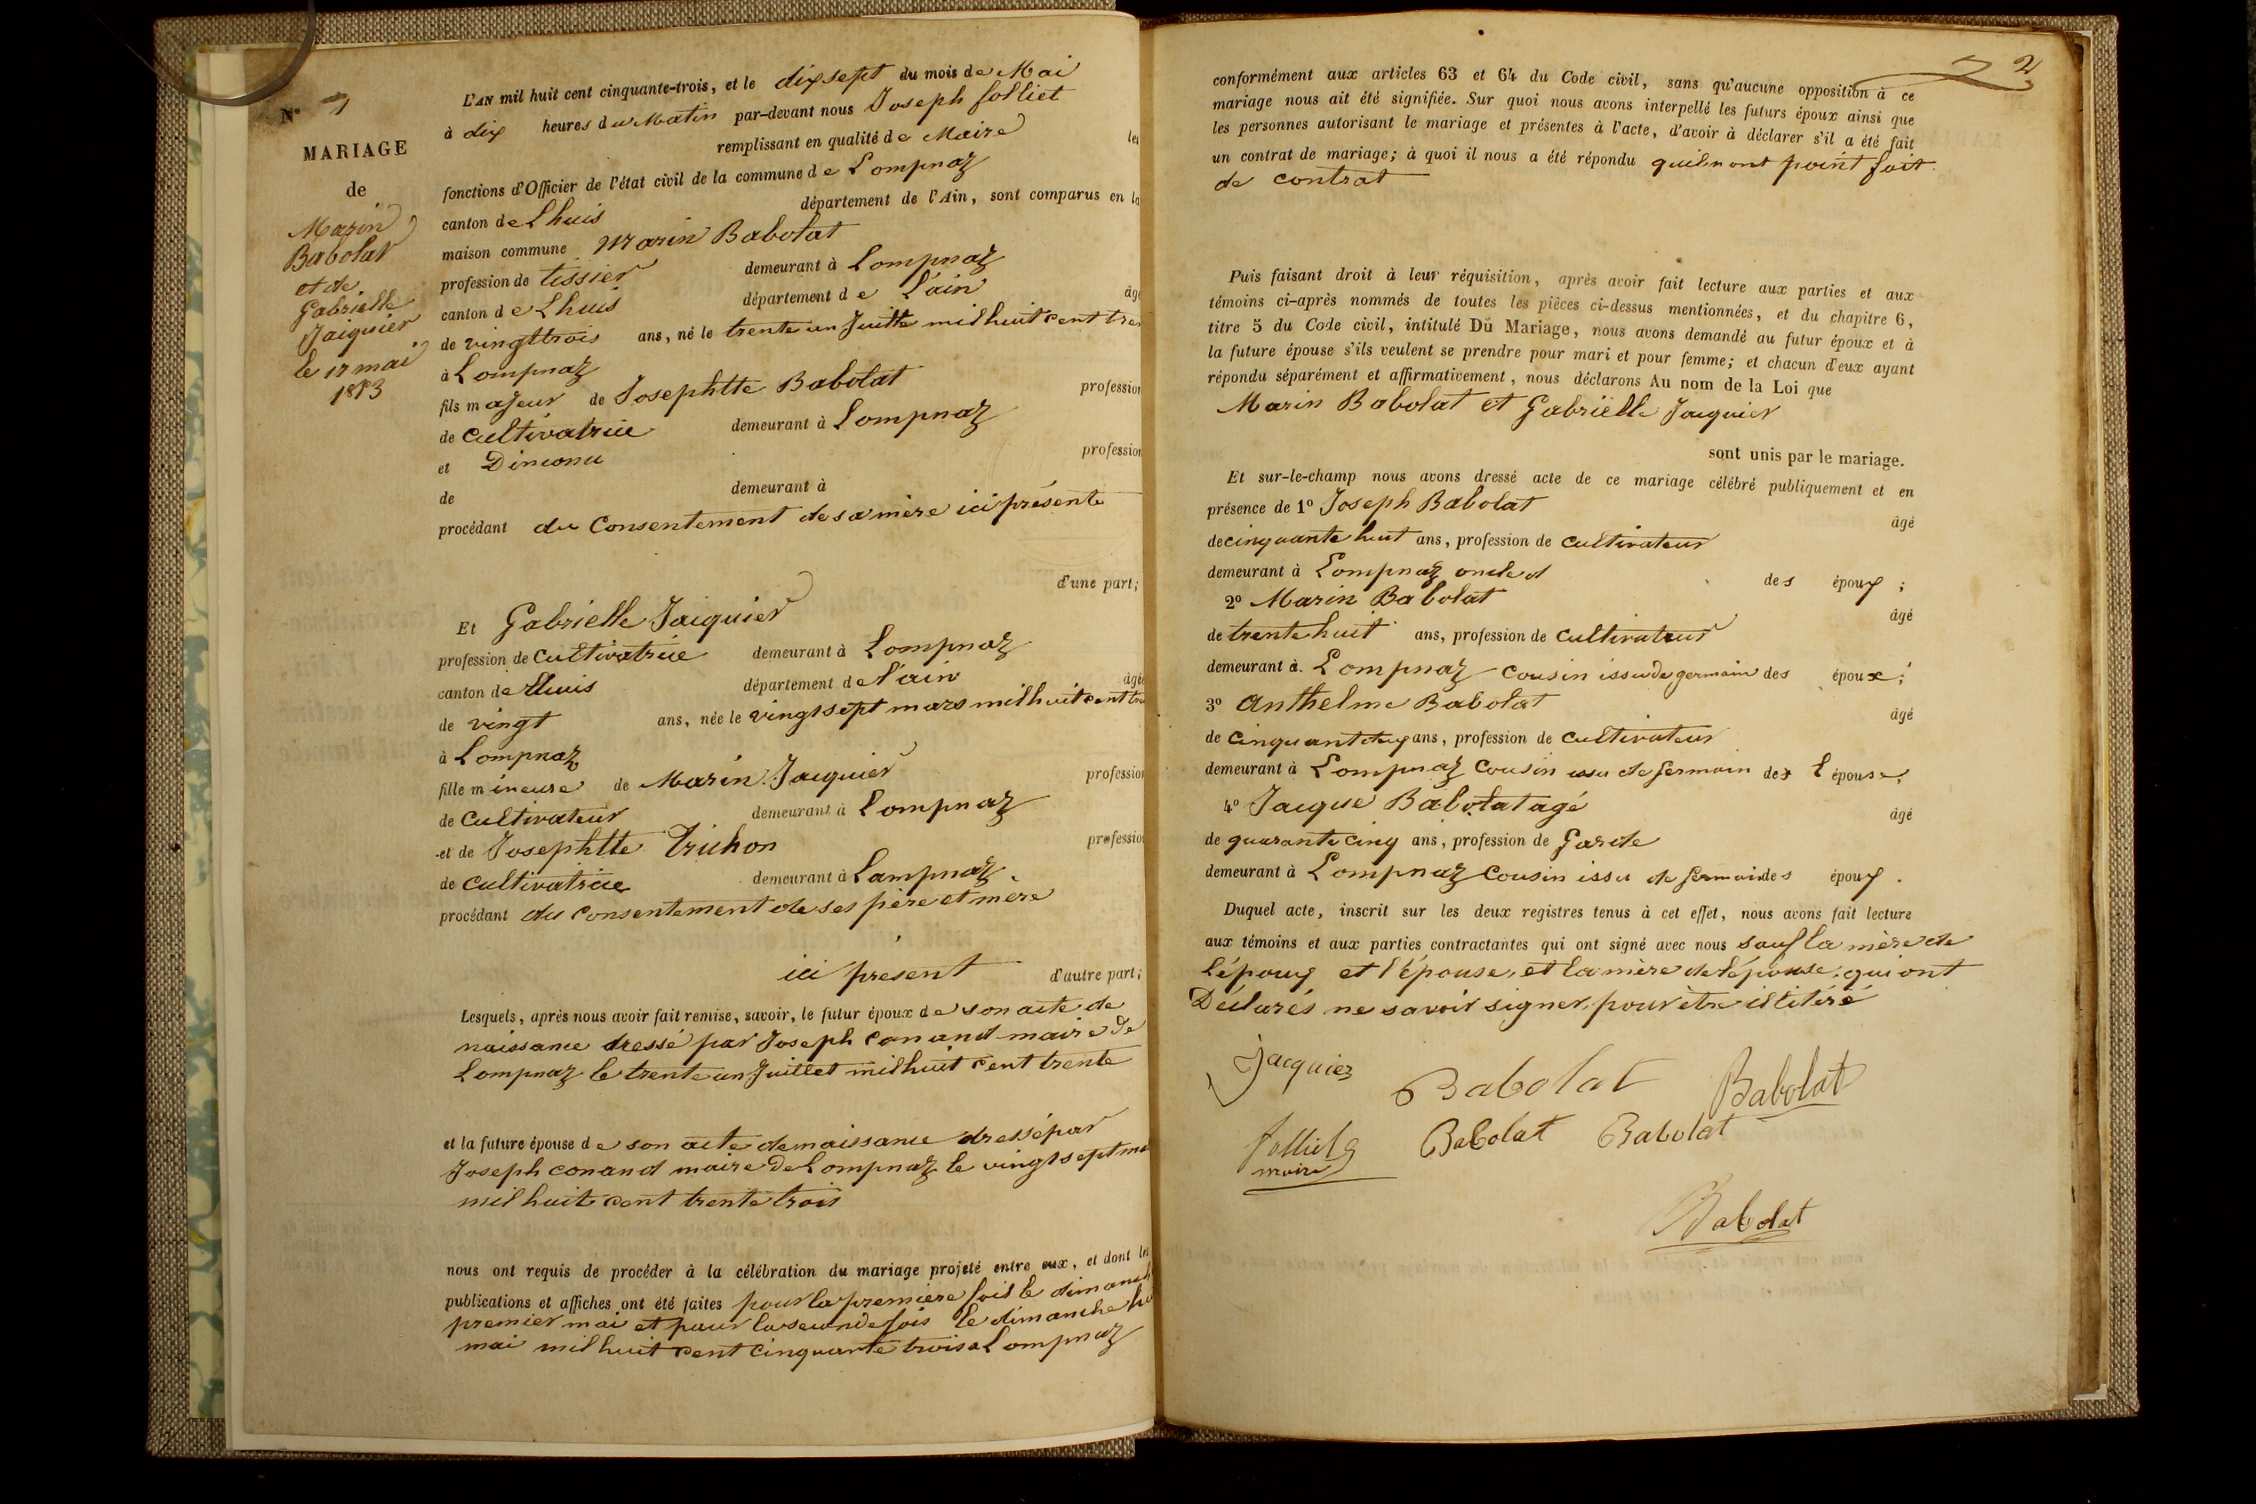 N° 1
MARIAGE
de
Marin
Babolat
et de
Gabrielle
Jaiquier
le 17 mai
1853
L'AN mil huit cent cinquante-trois, et le dix sept du mois de Mai
à dix heures du Matin par-devant nous Joseph folliet
remplissant en qualité de Maire les
fonctions d'Officier de l'état civil de la commune de Lompnaz
canton de Lhuis département de l'Ain, sont comparus en la
maison commune Marin Babolat
profession de tissier demeurant à Lompnaz
canton de Lhuis département de L'ain âgé
de vingttrois ans, né le trente un Juille mil huit cent tren
à Lompnaz
fils majeur de Josephtte Babolat profession
de cultivatrice demeurant à Lompnaz
et Dinconu profession
de demeurant à
procédant du Consentement de sa mère ici présente
d'une part;
Et Gabrielle Jaiquier
profession de cultivatrice demeurant à Lompnaz
canton de Lhuis département de l'ain âgée
de vingt ans, née le vingt sept mars mil huit cent tre
à Lompnaz
fille mineure de Marin Jacquier profession
de cultivateur demeurant à Lompnaz
et de Josephtte Trichon profession
de cultivatrice demeurant à Lampnaz
procédant du consentement de ses père et mère
ici présent d'autre part;
Lesquels, après nous avoir fait remise, savoir, le futur époux de son acte de
naissance dressé par Joseph conand maire de
Lompnaz le trente un Juillet mil huit cent trente
et la future épouse de son acte de naissance dressé par
Joseph conand maire de Lompnaz le vingt sept ma
mil huit cent trente trois
nous ont requis de procéder à la célébration du mariage projeté entre eux, et dont les
publications et affiches ont été faites pour la premiere fois le dimanch
premier mai et pour la seconde fois le dimanche hu
mai mil huit cent cinquante trois a Lompnaz
2
conformément aux articles 63 et 64 du Code civil, sans qu'aucune opposition à ce
mariage nous ait été signifiée. Sur quoi nous avons interpellé les futurs époux ainsi que
les personnes autorisant le mariage et présentes à l'acte, d'avoir à déclarer s'il a été fait
un contrat de mariage; à quoi il nous a été répondu quil n ont point fait
de contrat
Puis faisant droit à leur réquisition, après avoir fait lecture aux parties et aux
témoins ci-après nommés de toutes les pièces ci-dessus mentionnées, et du chapitre 6,
titre 5 du Code civil, intitulé Du Mariage, nous avons demandé au futur époux et à
la future épouse s'ils veulent se prendre pour mari et pour femme; et chacun d'eux ayant
répondu séparément et affirmativement, nous déclarons Au nom de la Loi que
Marin Babolat et Gabriëlle Jaiquier
sont unis par le mariage.
Et sur-le-champ nous avons dressé acte de ce mariage célébré publiquement et en
présence de 1° Joseph Babolat âgé
de cinquante huit ans, profession de cultivateur
demeurant à Lompnaz oncle d des époux ;
2° Marin Babolat âgé
de trente huit ans, profession de cultivateur
demeurant à Lompnaz cousin issu de germain des époux;
3° Anthelme Babolat âgé
de cinquant deux ans, profession de cultivateur
demeurant à Lompnaz Cousin issu de germain des l épouse;
4° Jacque Babolat agé âgé
de quarante cinq ans, profession de Garde
demeurant à Lompnaz Cousin issu de Germain des époux.
Duquel acte, inscrit sur les deux registres tenus à cet effet, nous avons fait lecture
aux témoins et aux parties contractantes qui ont signé avec nous sauf la mère de
l'époux et l'épouse, et la mère de l'épouse; qui ont
Déclarés ne savoir signer, pour être illitéré
Jacquier Babolat Babolat
folliet Babolat Babolat
maire
Babolat